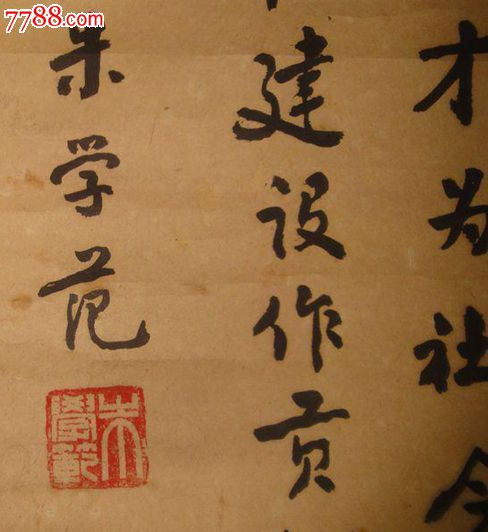 7788.com
才为社会
建设作贡
朱学范
朱學範